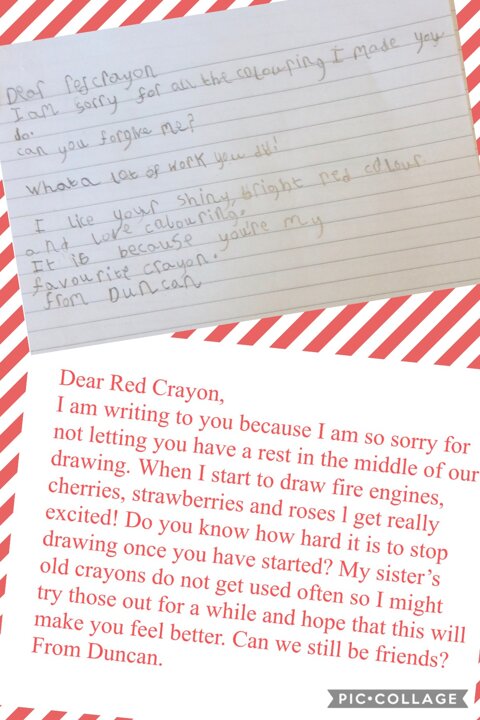 Dear red crayon
I am sorry for all the colouring I made you
do.
can you forgive me?
What a lot of work you do!
I like your shiny, bright red colour
and love colouring.
It is because you're my
favourite crayon.
from Duncan
Dear Red Crayon,
I am writing to you because I am so sorry for
not letting you have a rest in the middle of our
drawing. When I start to draw fire engines,
cherries, strawberries and roses l get really
excited! Do you know how hard it is to stop
drawing once you have started? My sister’s
old crayons do not get used often so I might
try those out for a while and hope that this will
make you feel better. Can we still be friends?
From Duncan.
PIC•COLLAGE